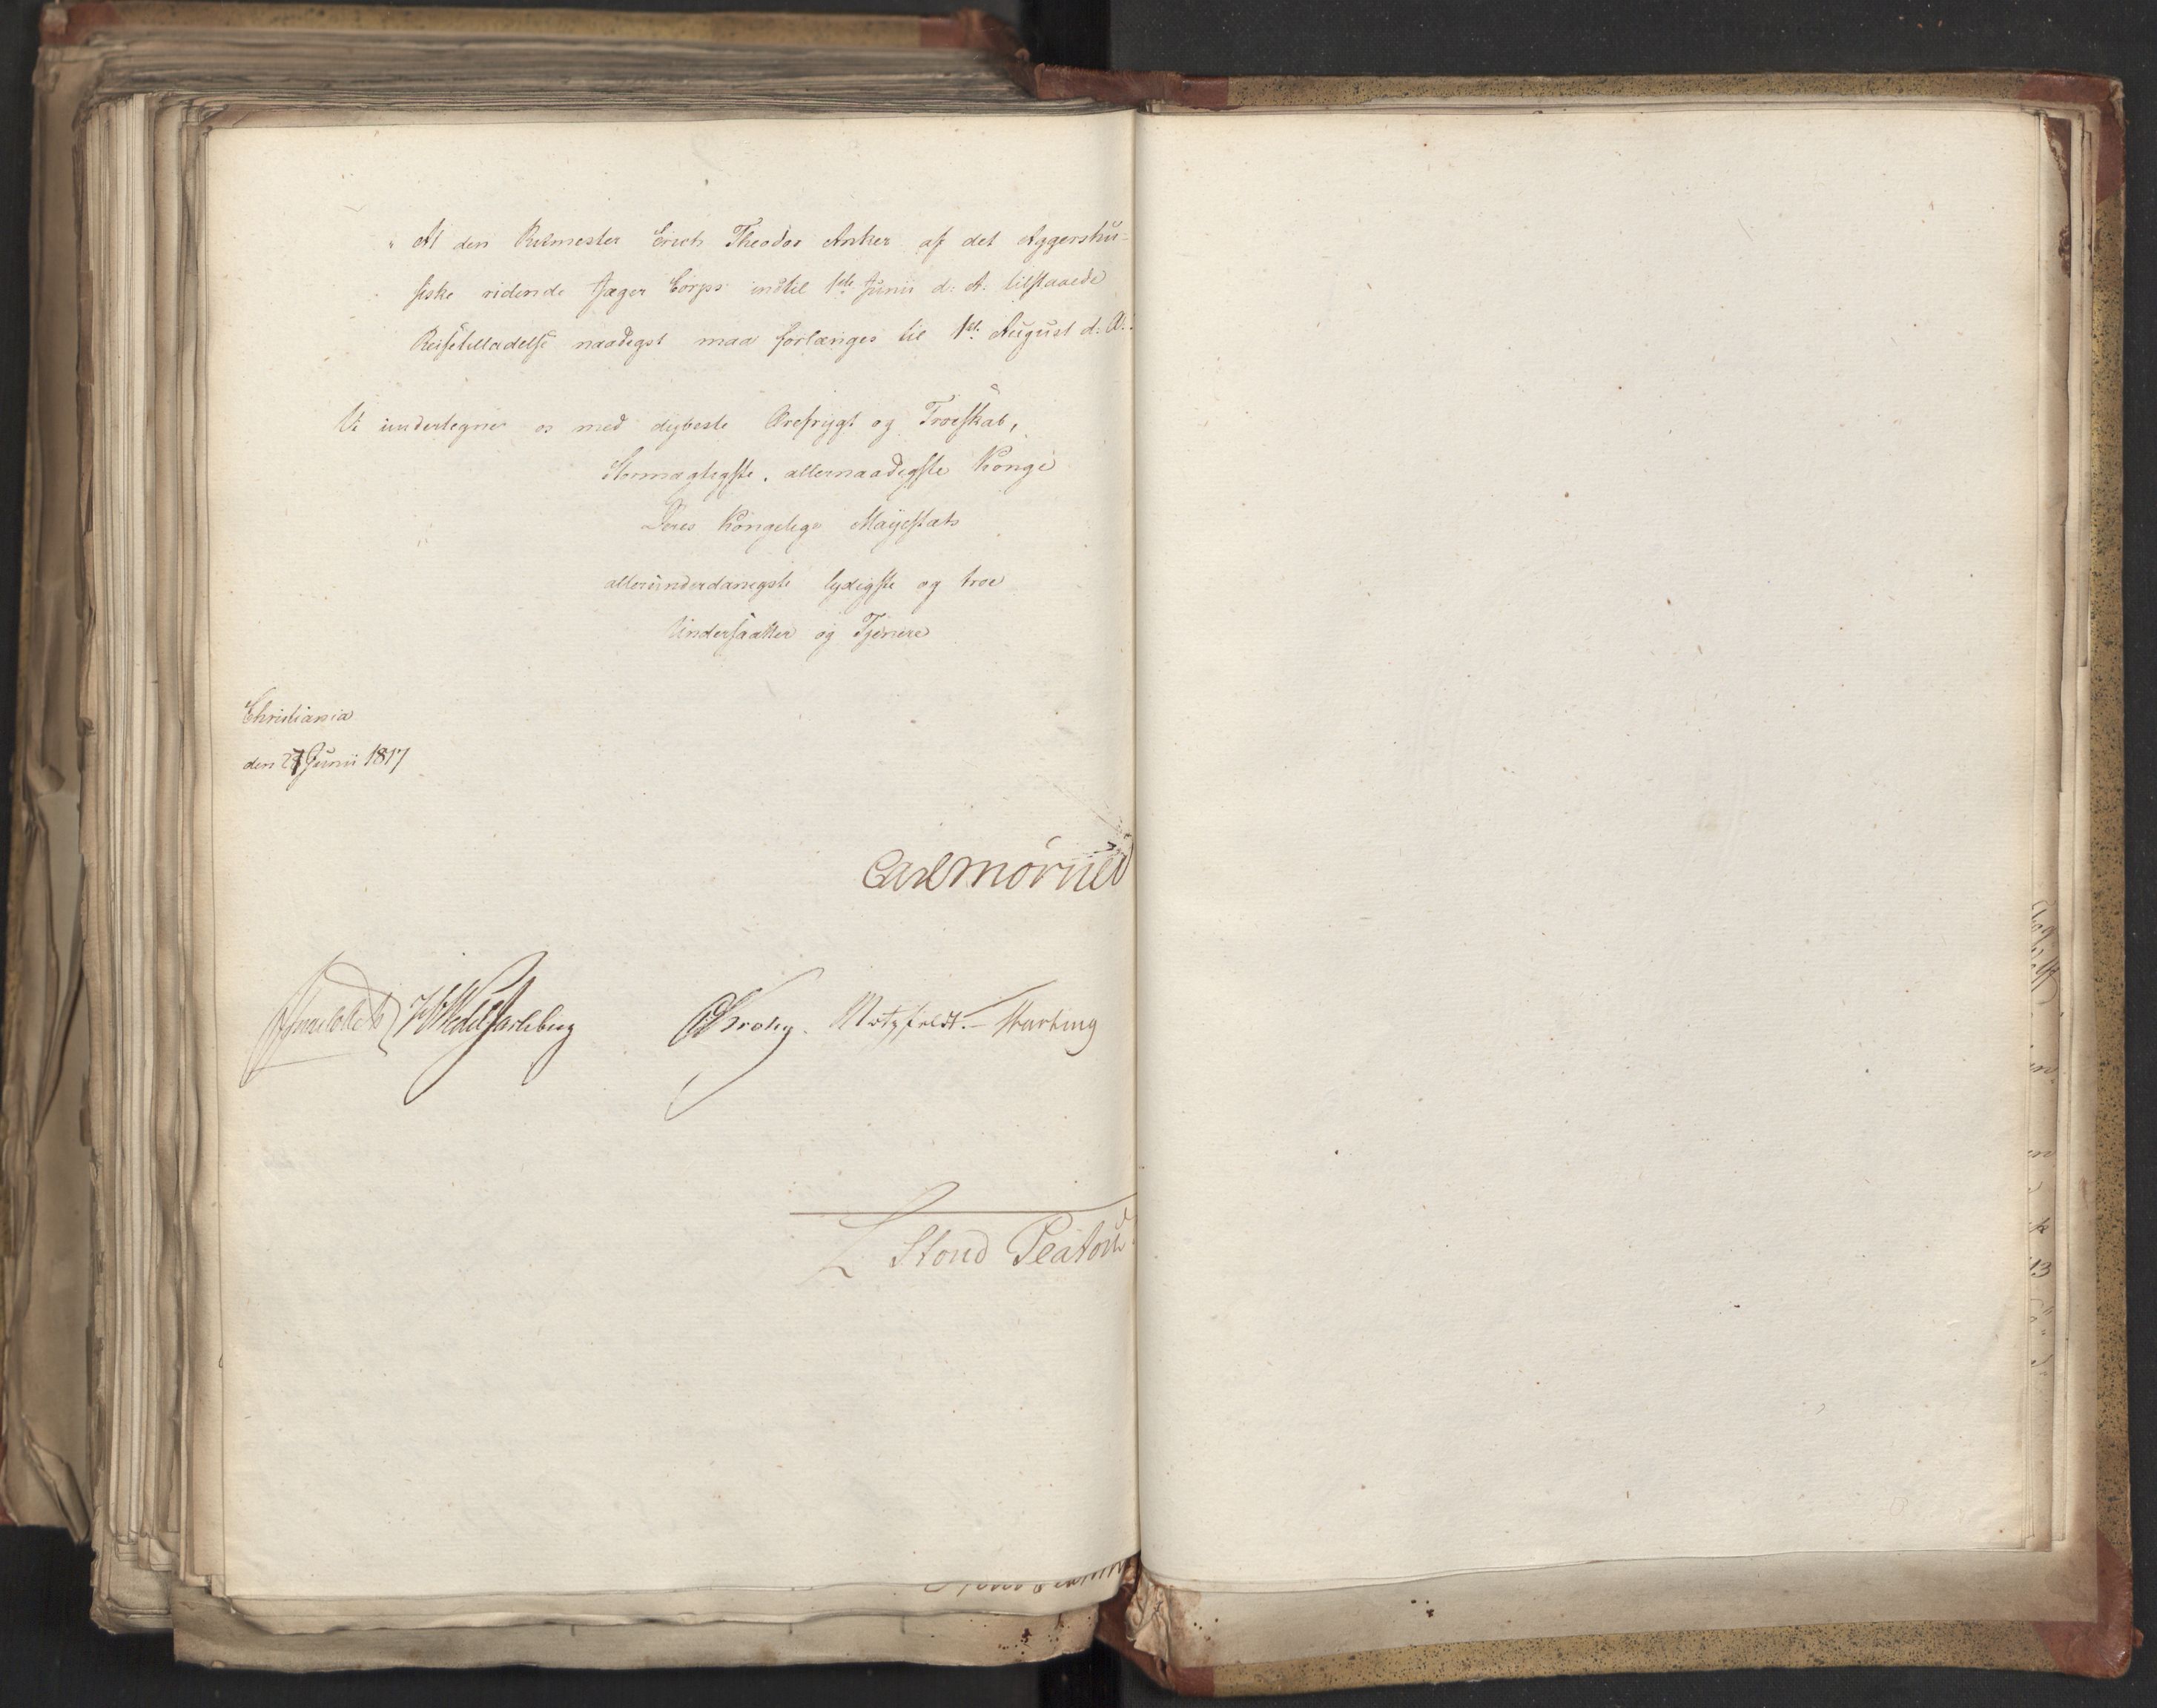 " At den Ritmester Erich Theodor Anker af det Aggershu-
siske ridende Jæger Corps indtil 1ste Junii d: A: tilstaaede
Reisetilladelse naadigst maa forlænges til 1st August d: A:
Vi undertegne os med dybeste Ærefrygt og Troeskab,
Stormægtigste, allernaadigste Konge
Deres Kongelige Mayestæts
allerunderdanigste lydigste og troe
Undersaatter og Tjenere
Christiania
den 27 Junii 1817
Carl Mörner
Sommerhielm JHWedelJarlsberg CKrohg. Motzfeldt.- Hartung
L Stoud Platou